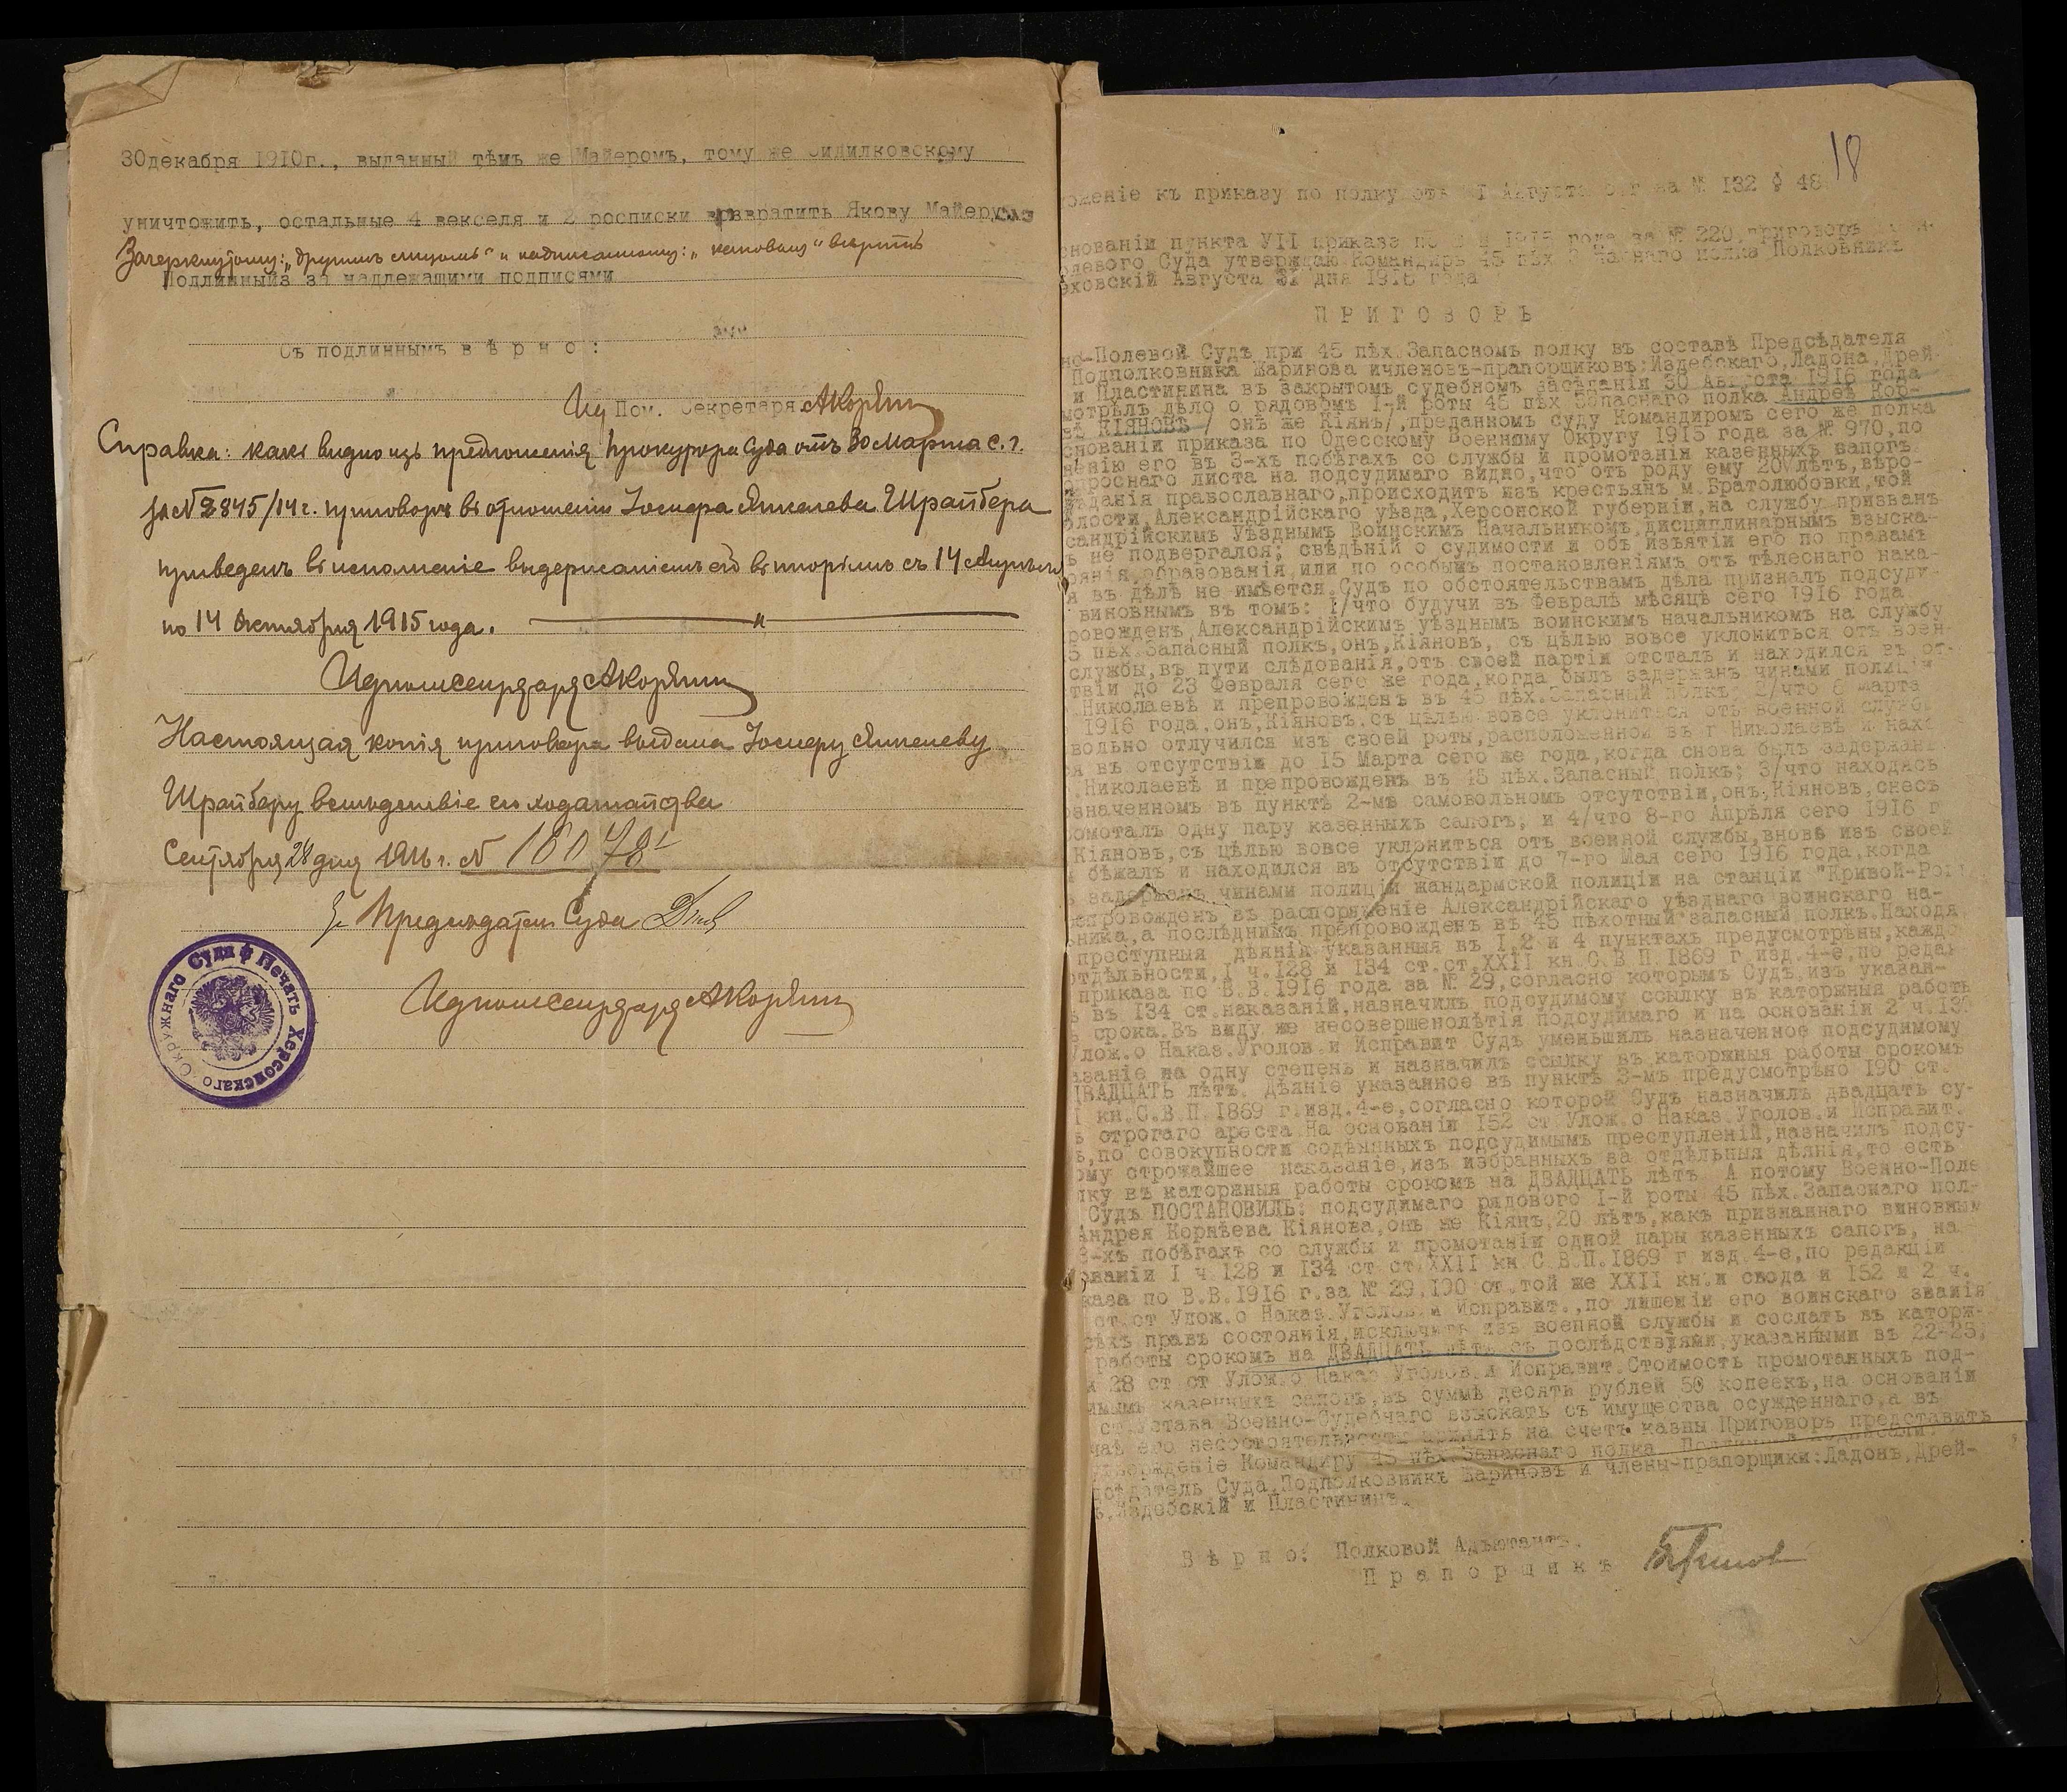 30декабря 1910г., выданный тѣмъ же Майеромъ, тому же Зидилковскому
уничтожить, остальные 4 векселя и 2 росписки возвратить Якову Майеру
Зачеркнутому: „другимъ лицомъ" и надписанному: „ вѣрить
Подлинный за надлежащими подписями
Съ подлиннымъ в ѣ р н о :
Ид Пом. Секретаря
Справка: какъ видно изъ предложенія Прокурора Суда отъ 30 Марта с. г.
за № 2845/14 г. приговоръ въ отношеніи Іосифа Янкелева Шрайбера
приведенъ въ исполненіе выдержаніемъ его въ тюрьмѣ съ 14 Апрѣля
по 14 Октября 1915 года.
Настоящая копія приговора выдана Іосифу Янкелеву
Шрайберу вслѣдствіе его ходатайства
Сентября 28 дня 1916 г. № 18078
За Предсѣдателя Суда
Печать Херсонскаго Окружнаго Суда
18
оженіе къ приказу по полку отъ 31 Августа с.г. за № 132 § 48
снованіи пункта УІІ приказа по 1915 года за № 220, приговоръ
олевого Суда утверждаю. Командиръ 45 пѣх. Запаснаго полка Полковникъ
ховскій Августа 31 дня 1916 года
П Р И Г О В О Р Ъ
но-Полевой Судъ при 45 пѣх.Запасномъ полку въ составѣ Предсѣдателя
Подполковника Жаринова и членовъ-прапорщиковъ:Издебскаго,Ладона,Дрей-
и Пластинина въ закрытомъ судебномъ засѣданіи 30 Августа 1916 года
мотрѣлъ дѣло о рядовомъ 1-й роты 45 пѣх Запаснаго полка Андреѣ Кор-
вѣ КІЯНОВѢ / онъ же Кіянъ/,преданномъ суду Командиромъ сего же полка
снованіи приказа по Одесскому Военному Округу 1915 года за № 970,по
ненію его въ 3-хъ побѣгахъ со службы и промотаніи казенныхъ сапогъ.
опроснаго листа на подсудимаго видно,что отъ роду ему 20 лѣтъ,вѣро-
ѣданія православнаго,происходитъ изъ крестьянъ м.Братолюбовки,той
олости,Александрійскаго уѣзда,Херсонской губерніи,на службу призванъ
сандрійскимъ Уѣзднымъ Воинскимъ Начальникомъ,дисциплинарнымъ взыска-
ъ не подвергался; свѣдѣній о судимости и объ изъятіи его по правамъ
оянія,образованія,или по особымъ постановленіямъ отъ тѣлеснаго нака-
я въ дѣлѣ не имѣется.Судъ по обстоятельствамъ дѣла призналъ подсуди-
виновнымъ въ томъ: 1/что будучи въ Февралѣ мѣсяцѣ сего 1916 года
ровожденъ Александрійскимъ уѣзднымъ воинскимъ начальникомъ на службу
5 пѣх.Запасный полкъ,онъ,Кіяновъ, съ цѣлью вовсе уклониться отъ воен-
службы,въ пути слѣдованія,отъ своей партіи отсталъ и находился въ от-
твіи до 23 Февраля сего же года,когда былъ задержанъ чинами полиціи
Николаевѣ и препровожденъ въ 45 пѣх.Запасный полкъ; 2/что 6 Марта
1916 года,онъ,Кіяновъ,съ цѣлью вовсе уклониться отъ военной службы
вольно отлучился изъ своей роты,расположенной въ г Николаевѣ и нахо
я въ отсутствіи до 15 Марта сего же года,когда снова былъ задержанъ
Николаевѣ и препровожденъ въ 45 пѣх.Запасный полкъ; 3/что находясь
означенномъ въ пунктѣ 2-мъ самовольномъ отсутствіи,онъ,Кіяновъ,снесъ
омоталъ одну пару казенныхъ сапогъ; и 4/что 8-го Апрѣля сего 1916 г
Кіяновъ,съ цѣлью вовсе уклониться отъ военной службы,вновь изъ своей
бѣжалъ и находился въ отсутствіи до 7-го Мая сего 1916 года,когда
задержанъ чинами полиціи жандармской полиціи на станціи "Кривой-Рогъ
епровожденъ въ распоряженіе Александрійскаго уѣзднаго воинскаго на-
ьника,а послѣднимъ препровожденъ въ 45 пѣхотный запасный полкъ.Находя
преступныя дѣянія указанныя въ 1,2 и 4 пунктахъ предусмотрѣны,каждо
отдѣльности,1 ч.128 и 134 ст.ст.XXII кн.С.В.П.1869 г.изд.4-е,по редак
приказа по В.В.1916 года за № 29,согласно которымъ Судъ,изъ указан-
ъ въ 134 ст.наказаній,назначилъ подсудимому ссылку въ каторжныя работы
срока.Въ виду же несовершеннолѣтія подсудимаго и на основаніи 2 ч.13
Улож.о Наказ.Уголов.и Исправит Судъ уменьшилъ назначенное подсудимому
азаніе на одну степень и назначилъ ссылку въ каторжныя работы срокомъ
ДВАДЦАТЬ лѣтъ. Дѣяніе указанное въ пунктѣ 3-мъ предусмотрѣно 190 ст.
кн.С.В.П.1869 г.изд.4-е,согласно которой Судъ назначилъ двадцать су-
ъ строгаго ареста На основаніи 152 ст.Улож.о Наказ.Уголов.и Исправит.
ъ,по совокупности содѣянныхъ подсудимымъ преступленій,назначилъ подсу-
ому строжайшее наказаніе,изъ избранныхъ за отдѣльныя дѣянія,то есть
лку въ каторжныя работы срокомъ на ДВАДЦАТЬ лѣтъ А потому Военно-Поле
Судъ ПОСТАНОВИЛЪ: подсудимаго рядового 1-й роты 45 пѣх.Запаснаго пол-
Андрея Корнѣева Кіянова,онъ же Кіянъ,20 лѣтъ,какъ признаннаго виновнымъ
3-хъ побѣгахъ со службы и промотаніи одной пары казенныхъ сапогъ, на
ованіи 1 ч.128 и 134 ст ст.XXII кн С.В.П.1869 г изд.4-е,по редакціи
каза по В.В.1916 г.за № 29,190 ст.той же XXII кн.и свода и 152 и 2 ч.
ст.ст Улож.о Наказ.Уголов.и Исправит.,по лишеніи его воинскаго званія
сѣхъ правъ состоянія,исключить изъ военной службы и сослать въ каторж-
работы срокомъ на ДВАДЦАТЬ лѣтъ съ послѣдствіями,указанными въ 22-25,
и 28 ст ст Улож.о Наказ Уголов.и Исправит.Стоимость промотанныхъ под-
имымъ казенныхъ сапогъ,въ суммѣ десять рублей 50 копеекъ,на основаніи
ст.Устава Военно-Судебнаго взыскать съ имущества осужденнаго,а въ
чаѣ его несостоятельности принять на счетъ казны Приговоръ представить
утвержденіе Командиру 45 пѣх.Запаснаго полка. Подлинный подписали:
сѣдатель Суда,Подполковникъ Жариновъ и члены-прапорщики:Ладонъ,Дрей-
ъ,Издебскій и Пластининъ.
В ѣ р н о: Полковой Адъютантъ,
П р а п о р щ и к ъ